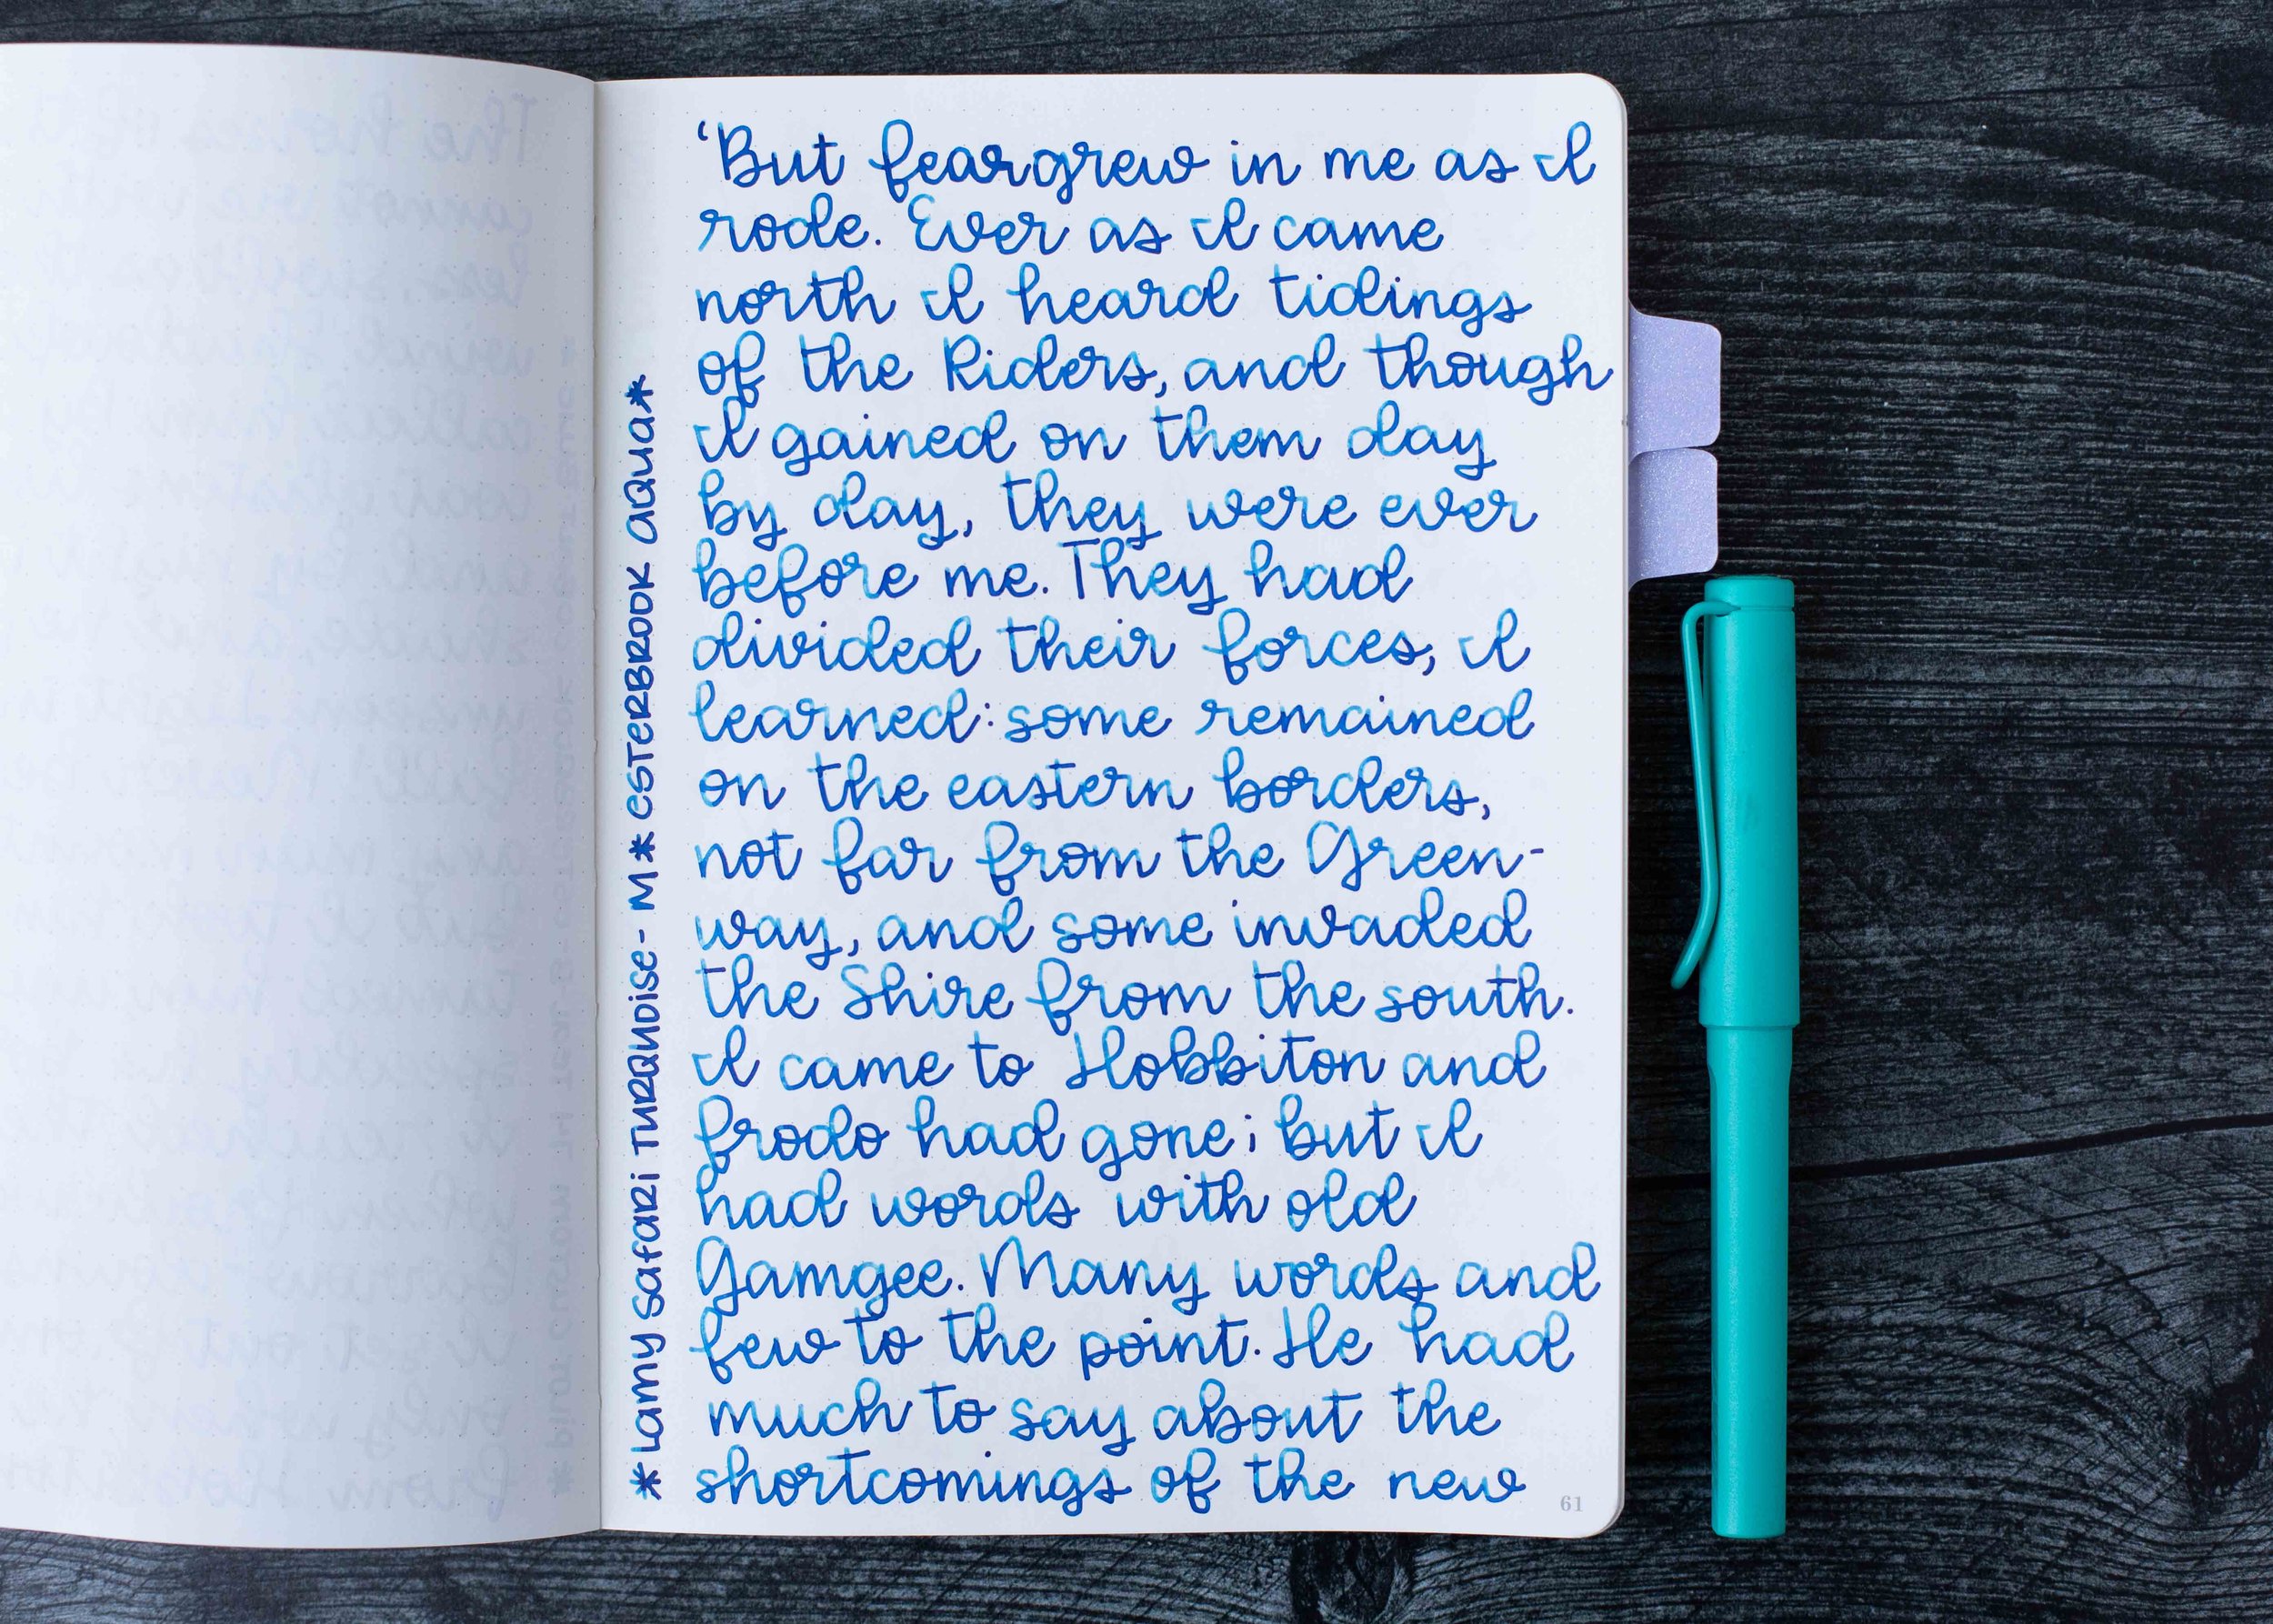 'But fear grew in me as I
rode. Ever as I came
north I heard tidings
of the Riders, and though
I gained on them day
by day, they were ever
before me. They had
divided their forces, I
learned: some remained
on the eastern borders,
not far from the Green-
way, and some invaded
the Shire from the south.
I came to Hobbiton and
Frodo had gone; but I
had words with old
Gamgee. Many words and
few to the point. He had
much to say about the
shortcomings of the new
61
*Lamy Safari Turquoise- M* Esterbrook Aqua*